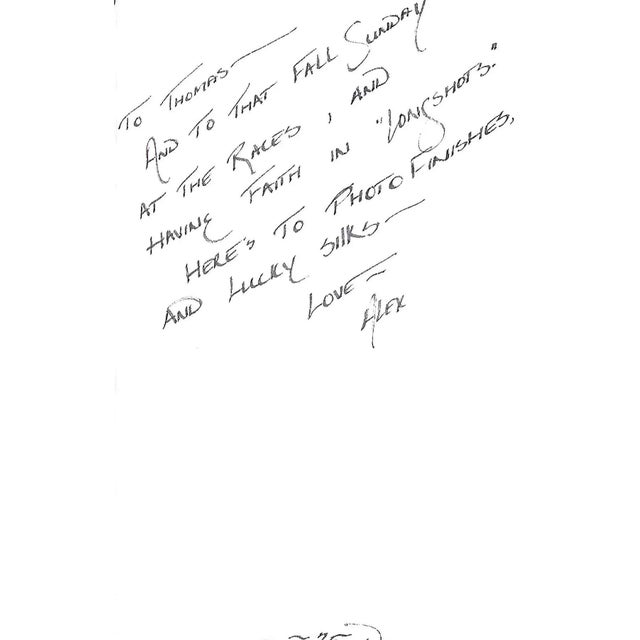 TO THOMAS—
AND TO THAT FALL SUNDAY
AT THE RACES, AND
HAVING FAITH IN "LONGSHOTS."
HERE'S TO PHOTO FINISHES,
AND LUCKY SILKS—
LOVE~
ALEX